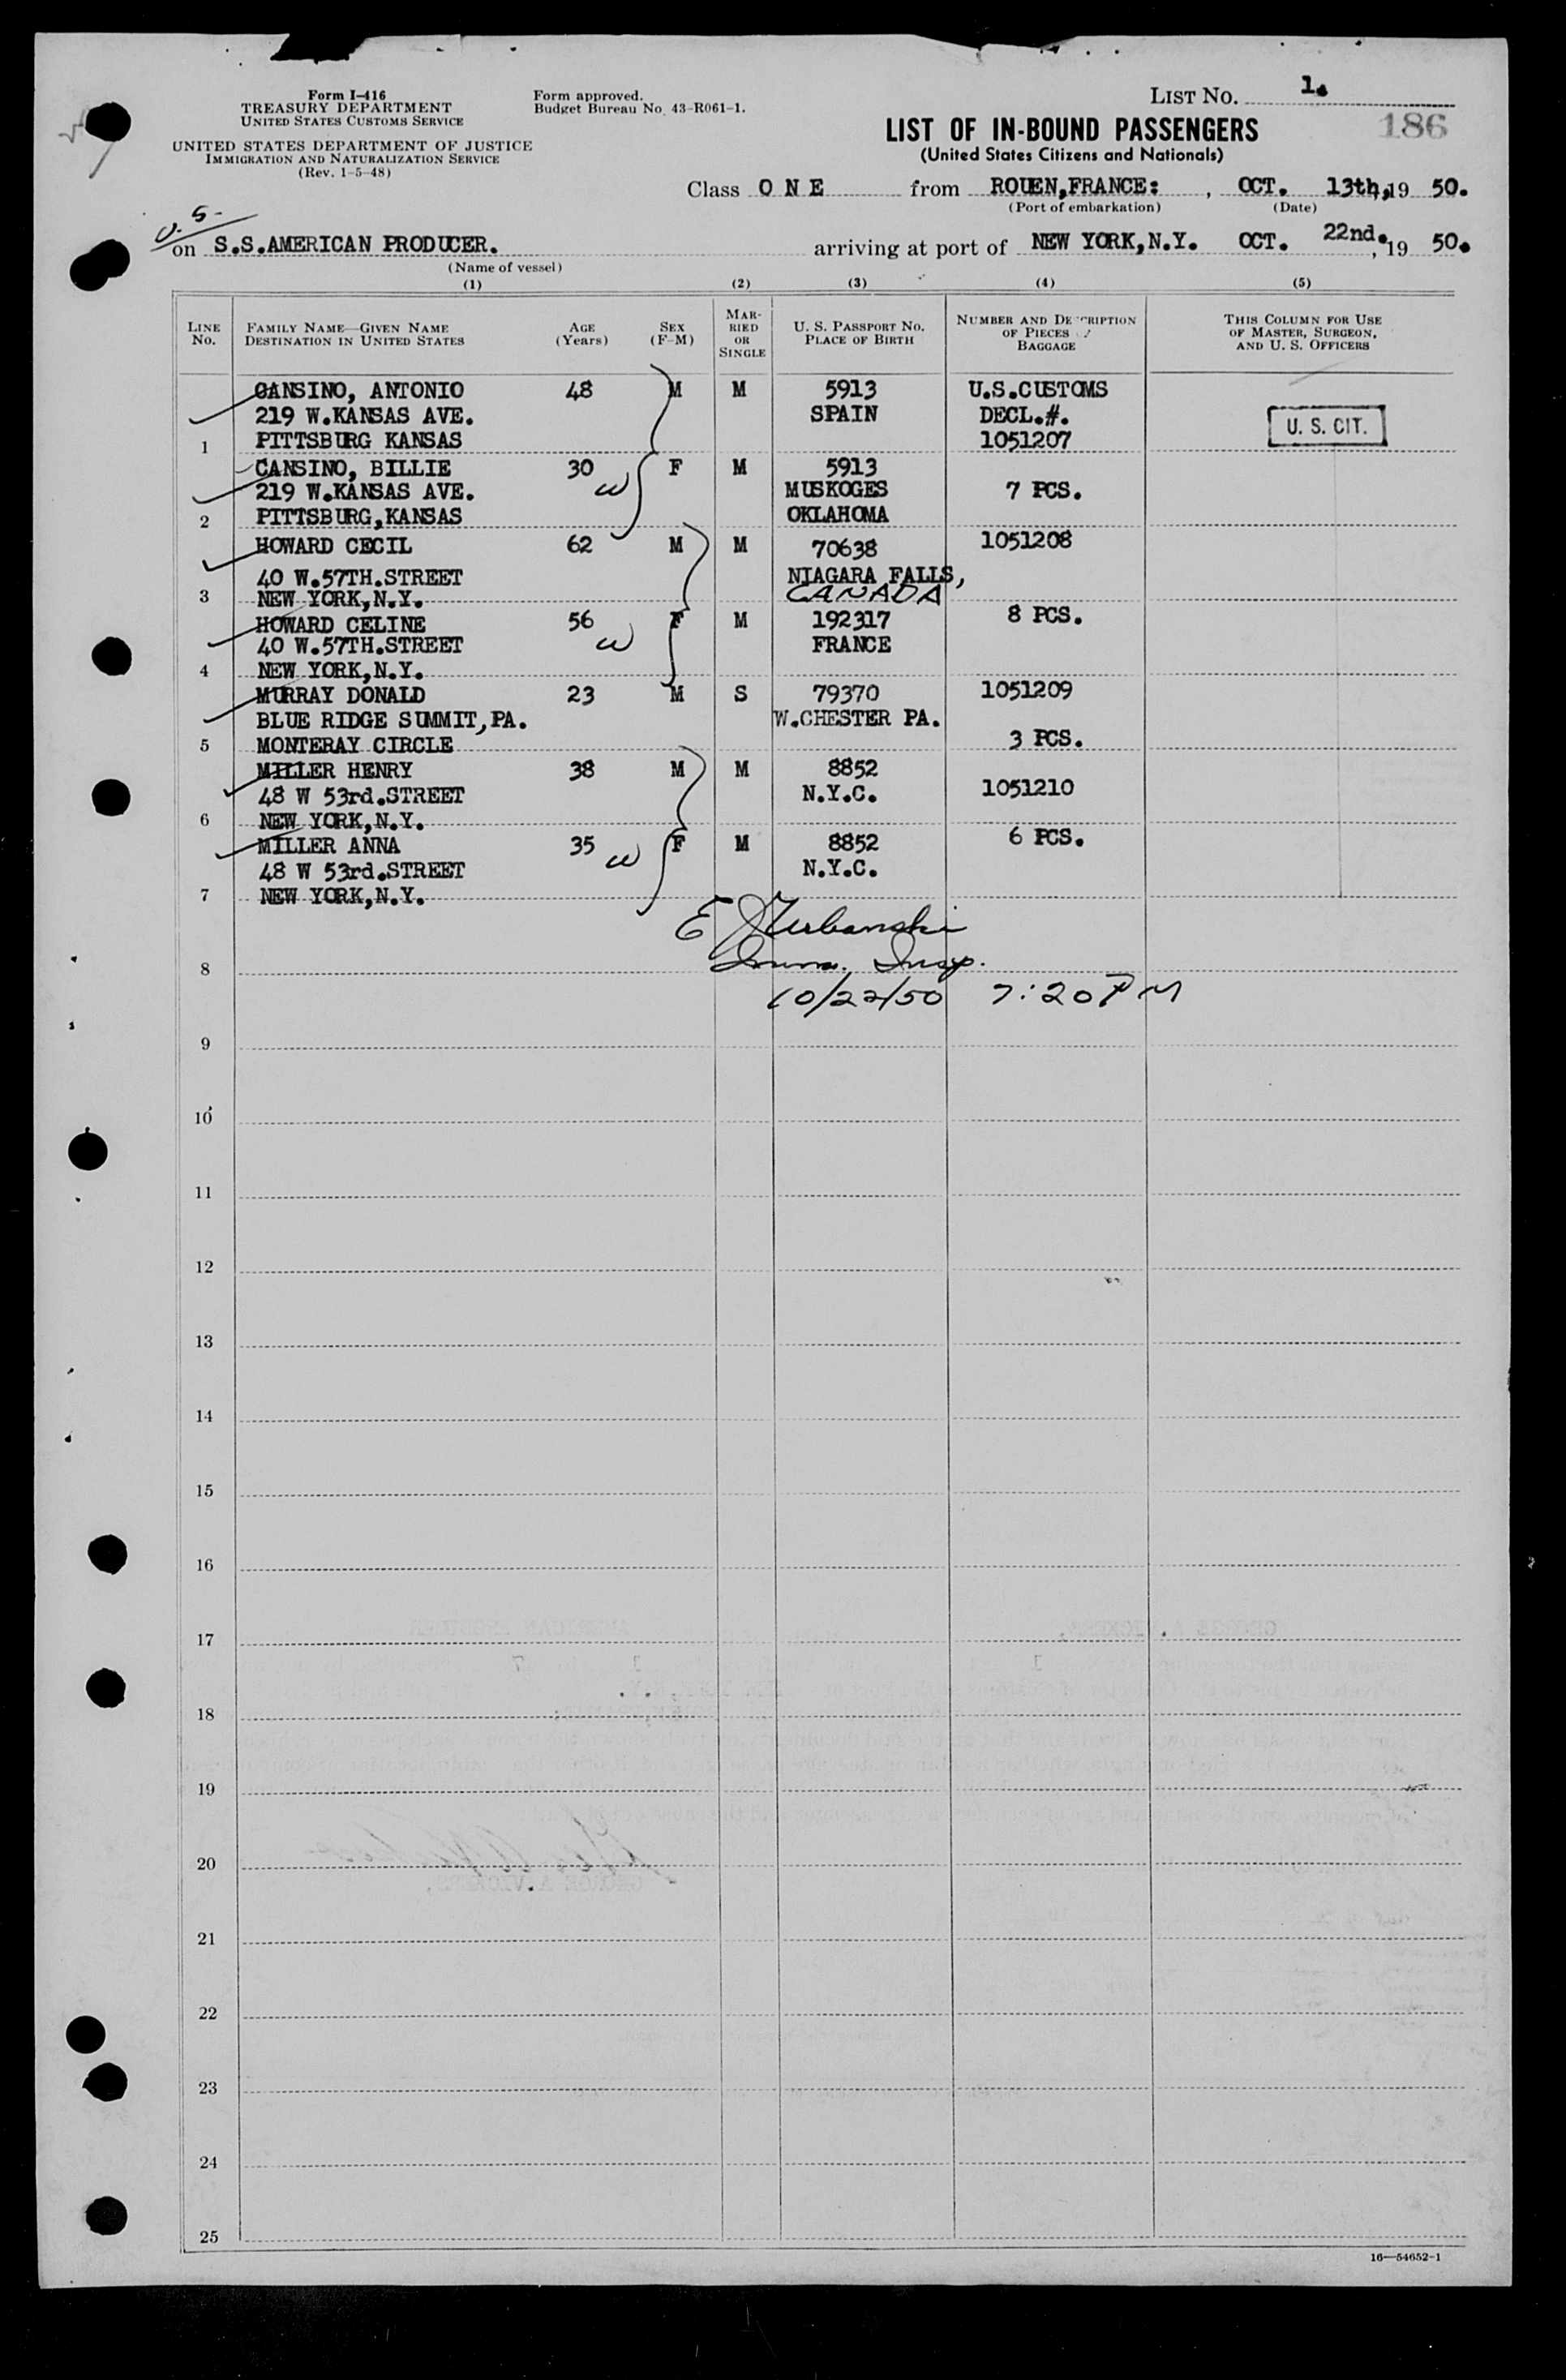 Form I-416
TREASURY DEPARTMENT
UNITED STATES CUSTOMS SERVICE
UNITED STATES DEPARTMENT OF JUSTICE
IMMIGRATION AND NATURALIZATION SERVICE
(Rev. 1-5-48)
Form approved.
Budget Bureau No. 43-R061-1.
LIST No. 1.
186
LIST OF IN-BOUND PASSENGERS
(United States Citizens and Nationals)
Class O N E from ROUEN,FRANCE: , OCT. 13th, 19 50.
(Port of embarkation) (Date)
U.S.
on S.S.AMERICAN PRODUCER. arriving at port of NEW YORK,N.Y. OCT. 22nd. , 19 50.
(Name of vessel)
(1) (2) (3) (4) (5)
LINE No. FAMILY NAME—GIVEN NAME DESTINATION IN UNITED STATES AGE (Years) SEX (F-M) MARRIED OR SINGLE U. S. PASSPORT No. PLACE OF BIRTH NUMBER AND DESCRIPTION OF PIECES BAGGAGE THIS COLUMN FOR USE OF MASTER, SURGEON, AND U. S. OFFICERS
CANSINO, ANTONIO 48 M M 5913 U.S.CUSTOMS
219 W.KANSAS AVE. SPAIN DECL.#. U. S. CIT.
1 PITTSBURG KANSAS 1051207
CANSINO, BILLIE 30 F M 5913
219 W.KANSAS AVE. W MUSKOGES 7 PCS.
2 PITTSBURG,KANSAS OKLAHOMA
HOWARD CECIL 62 M M 70638 1051208
40 W.57TH.STREET NIAGARA FALLS,
3 NEW YORK,N.Y. CANADA
HOWARD CELINE 56 F M 192317 8 PCS.
40 W.57TH.STREET W FRANCE
4 NEW YORK,N.Y.
MURRAY DONALD 23 M S 79370 1051209
BLUE RIDGE SUMMIT,PA. W.CHESTER PA.
5 MONTERAY CIRCLE 3 PCS.
MILLER HENRY 38 M M 8852
48 W 53rd.STREET N.Y.C. 1051210
6 NEW YORK,N.Y.
MILLER ANNA 35 W F M 8852 6 PCS.
48 W 53rd.STREET N.Y.C.
7 NEW YORK,N.Y.
E
8 Imm. Insp.
10/22/50 7:20 PM
9
10
11
12
13
14
15
16
17
18
19
20
21
22
23
24
25
16—54652-1